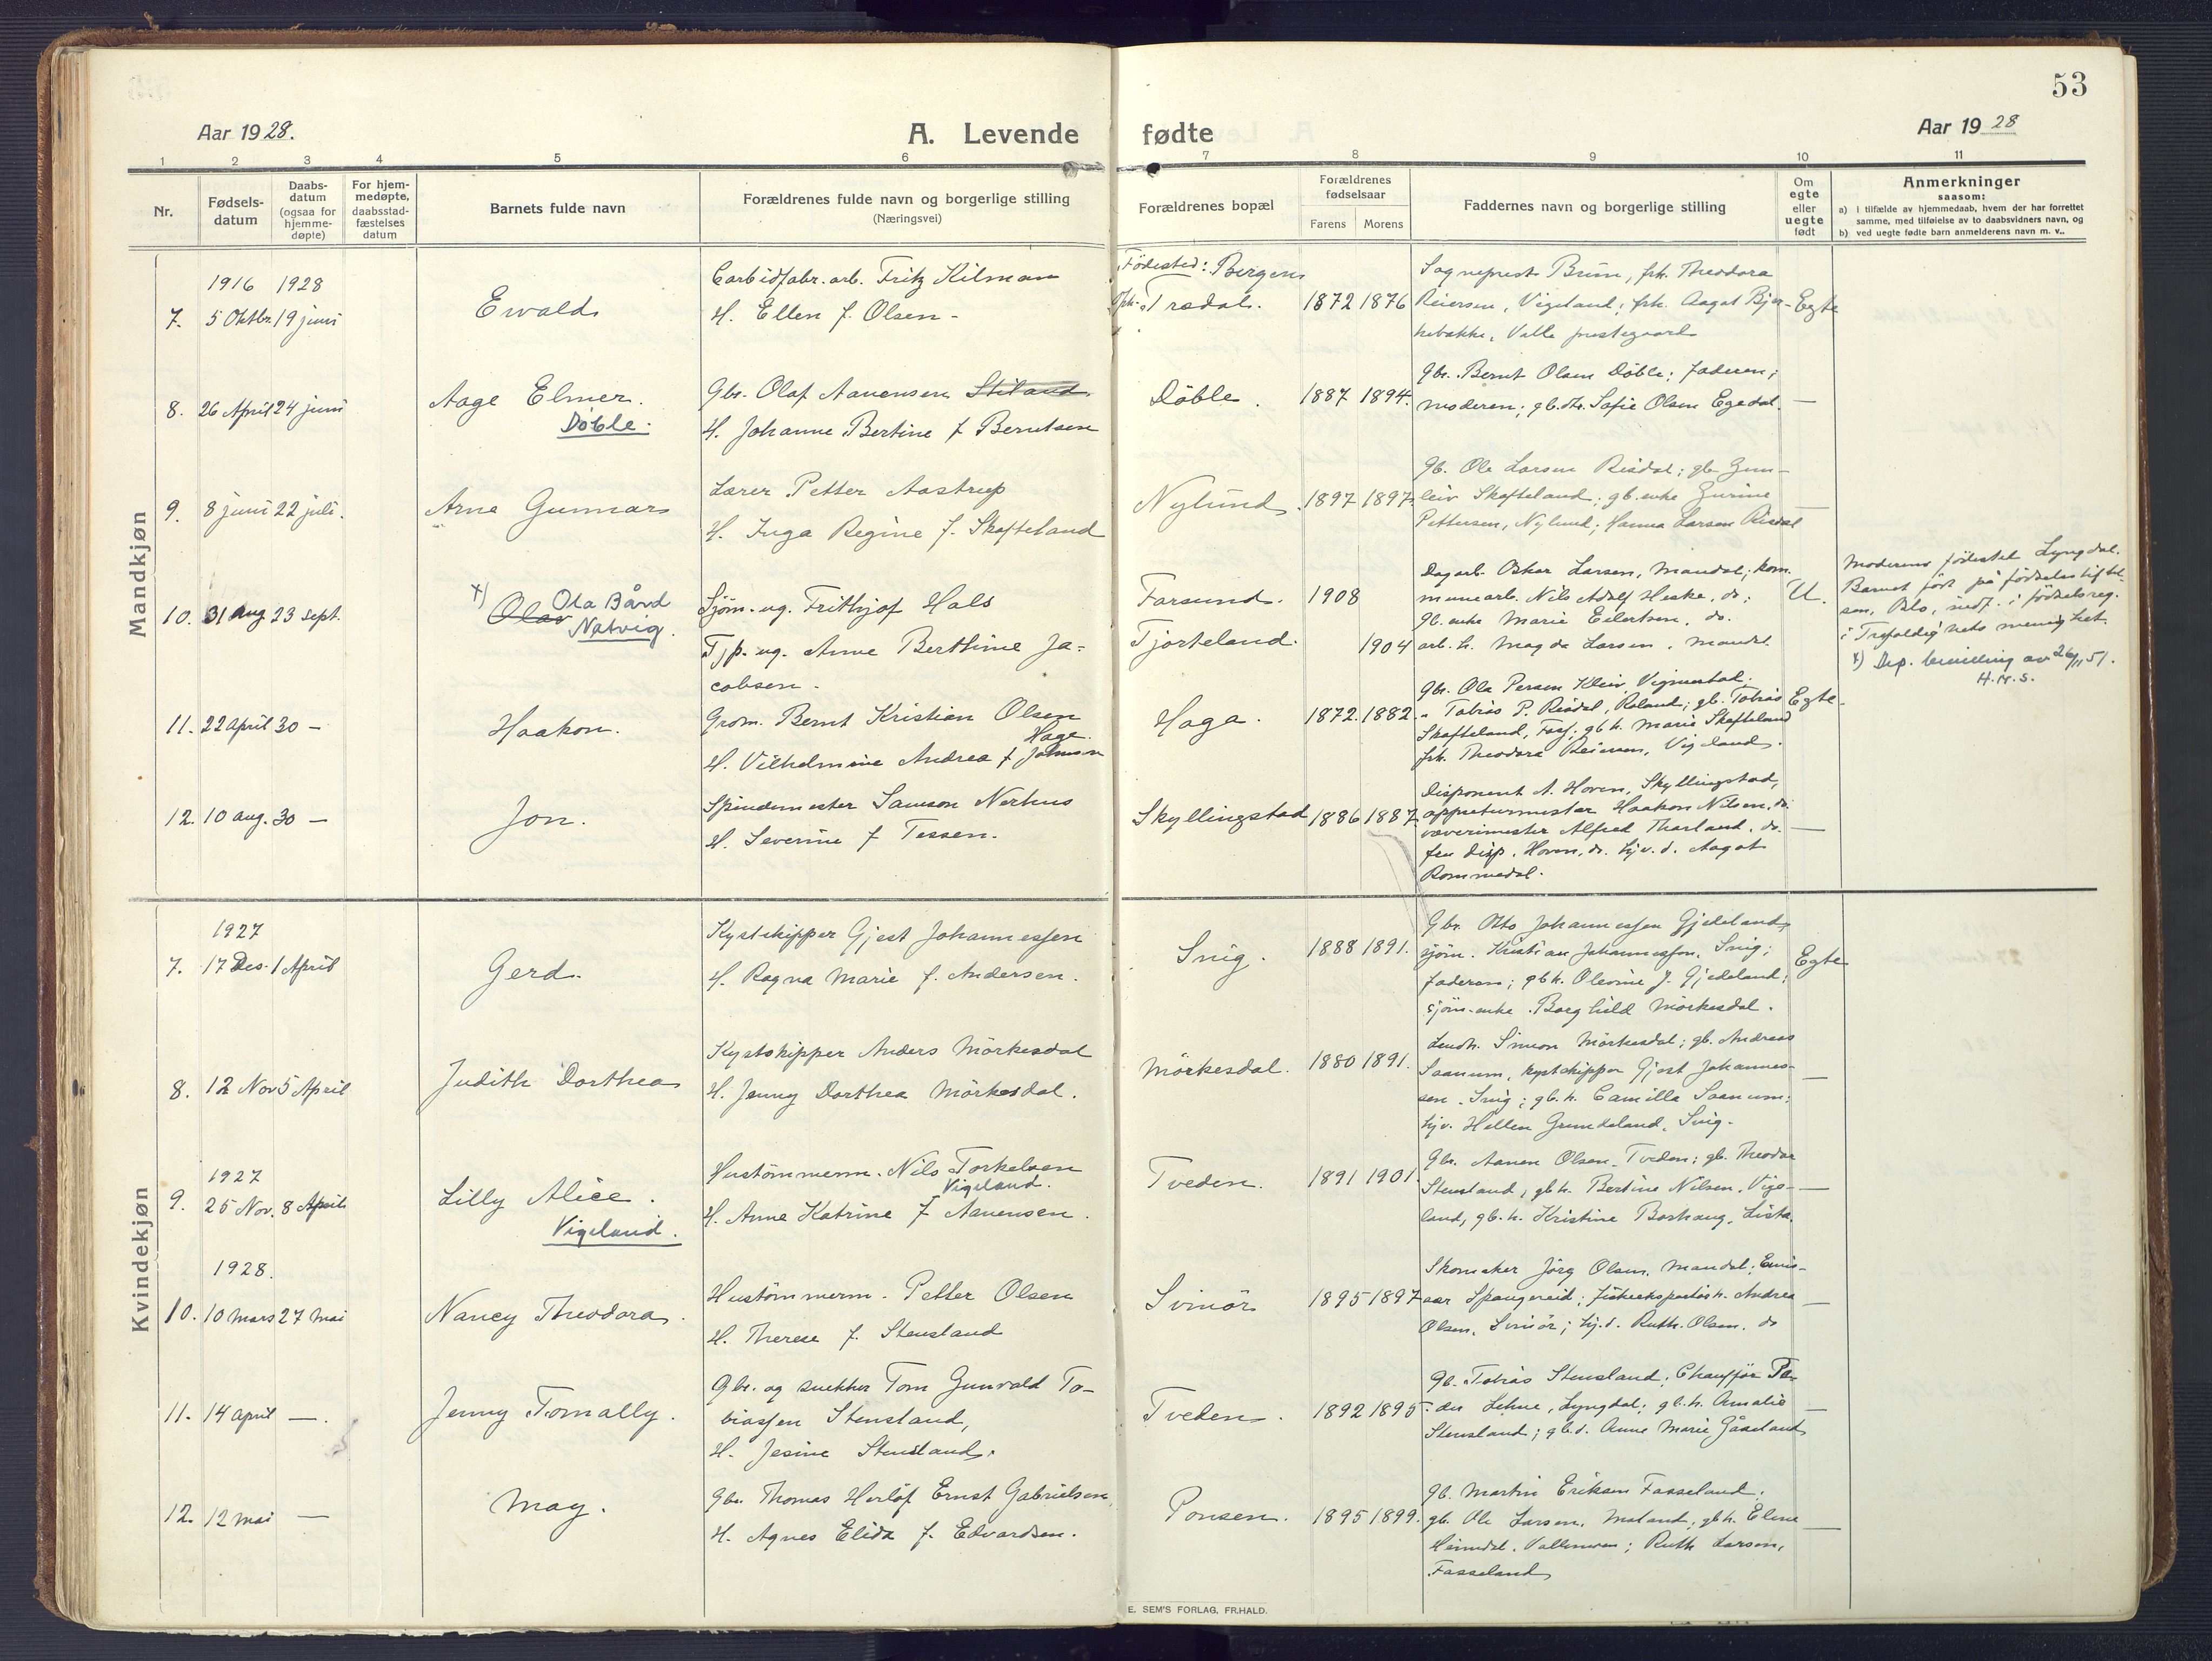 53
Aar 1928.
A. Levende
fødte
Aar 1928
1 2 3 4 5 6
7 8 9 10 11
Nr.
Fødsels-
datum
Daabs-
datum
(ogsaa for
hjemme-
døpte)
For hjem-
medøpte,
daabsstad-
fæstelses
datum
Barnets fulde navn
Forældrenes fulde navn og borgerlige stilling
(Næringsvei)
Forældrenes bopæl
Forældrenes
fødselsaar
Farens Morens
Faddernes navn og borgerlige stilling
Om
egte
eller
uegte
født
Anmerkninger
saasom:
a) i tilfælde av hjemmedaab, hvem der har forrettet
samme, med tilføielse av to daabsvidners navn, og
b) ved uegte fødte barn anmelderens navn m. v..
Mandkjøn
1916 1928
7. 5 Oktbr. 19 juni
Ewald
Carbidfabr. arb. Fritz Kilman
H. Ellen f. Olsen -
Födested: Bergen
Trædal.
1872 1876
Sogneprest Bruun, frk. Theodora
Reiersen, Vigeland; frk. Aagot Bjer-
kebakke, Valle prestegaard
Egte
8. 26 April 24 juni
Aage Elmer.
Döble.
Gbr. Olaf Aanensen Stiland
H. Johanne Bertine f Berntsen
Döble.
1887 1894.
Gbr. Bernt Olsen Döble; faderen;
moderen; gb.dtr. Sofie Olsen Egedal.
—
9. 8 juni 22 juli.
Arne Gunnar
Lærer Petter Aastrup
H. Inga Regine f. Skofteland
Nylund.
1897 1897.
Gb. Ole Larsen Risdal; gb. Gun-
leiv Skofteland; gb.enke Gurine
Pettersen, Nylund; Hanna Larsen Risdal
—
10. 31 aug 23 sept.
x) Olav Ola Bård
Natvig.
Sjöm. ug. Frithjof Hals
Tjp. ug. Anne Berthine Ja-
cobsen.
Farsund.
Tjorteland.
1908
1904
Dagarb. Oskar Larsen, Mandal; kom.
munearb. Nils Adolf Heske, do;
gb. enke Marie Eilertsen, do.
arb. h. Magda Larsen, Mandal.
U.
Moderens födested Lyngdal.
Barnet födt på födselsstiftel-
sen, Oslo, indf. i födselsreg.
i Trefoldighets menighet.
x) Dep. bevilling av 26/11 51.
H.H.S.
11. 22 April 30 —
Haakon.
Grom. Bernt Kristian Olsen
Hage.
H. Vilhelmine Andrea f Johnsen
Haga.
1872. 1882.
Gbr. Ola Persen Kleiv Vigmostad.
" Tobias P. Risdal, Roland; gb. Tobias
Skofteland, gb h. Marie Skofteland
frk. Theodora Reiersen, Vigeland.
Egte.
12. 10 aug. 30 —
Jon.
Spindemester Samson Nerhus
H. Severine f Tessen.
Skyllingstad
1886 1887.
Disponent A. Hoven, Skyllingstad,
appreturmester Haakon Nilsen, do.
væverimester Alfred Tharland, do.
fru disp. Hoven, do. hjv. d. Aagot
Rommedal.
—
Kvindekjøn
1927
7. 17 Des. 1 April
Gerd.
Kystskipper Gjest Johannessen
H. Ragna Marie f. Andersen.
Snig.
1888 1891.
Gbr. Otto Johannessen Gjedeland,
sjöm. Kristian Johannessen, Snig;
faderen; gbh. Olevine J. Gjedeland;
sjöm-enke Borghild Mörkesdal.
Egte
8. 12 Nov 5 April
Judith Dorthea
Kystskipper Anders Mörkesdal
H. Jenny Dorthea Mörkesdal.
Mörkesdal.
1880 1891.
Lensh. Simon Mörkesdal; gb. Andreas
Saanum, kystskipper Gjest Johannes-
sen, Snig; gb.h. Camilla Saanum;
hjv. Hellen Grundeland, Snig.
—
1927
9. 25 Nov. 8 April
Lilly Alice.
Vigeland.
Hustömmerm. Nils Torkelsen
Vigeland.
H. Anne Katrine f Aanensen.
Tveden.
1891 1901.
Gbr. Aanen Olsen, Tveden; gb. Theodor
Stensland; gbh. Bertine Nilsen, Vige-
land, gb.h. Kristine Borhaug, Lista.
—
1928.
10. 10 Mars 27 Mai
Nancy Theodora.
Hustömmerm. Petter Olsen
H. Therese f. Stensland
Svinör
1895 1897
Skomaker Jörg Olsen, Mandal; Einis-
aar Spangereid; fiskeeksportör h. Andrea
Olsen, Svinör; hj.d. Ruth Olsen, do
—
11. 14 april —.
Jenny Tomally.
Gbr. og snekker Tom Gunvald To-
biassen Stensland,
H. Jesine Stensland.
Tveden.
1892 1895
Gb. Tobias Stensland; Chauffør Pe-
der Lehne, Lyngdal; gb.h. Amalie
Stensland; gb.d. Anne Marie Gåseland
—
12. 12 Mai —
May.
Gbr. Thomas Herlöf Ernst Gabrielsen,
H. Agnes Elida f. Edvardsen.
Ponsen.
1895 1899.
Gb. Martin Eriksen Fasseland.
gb. Ole Larsen, Maland; gbh. Eline
Heimdal, Ruth Larsen,
Fasseland
—
E. SEM'S FORLAG, FR.HALD.